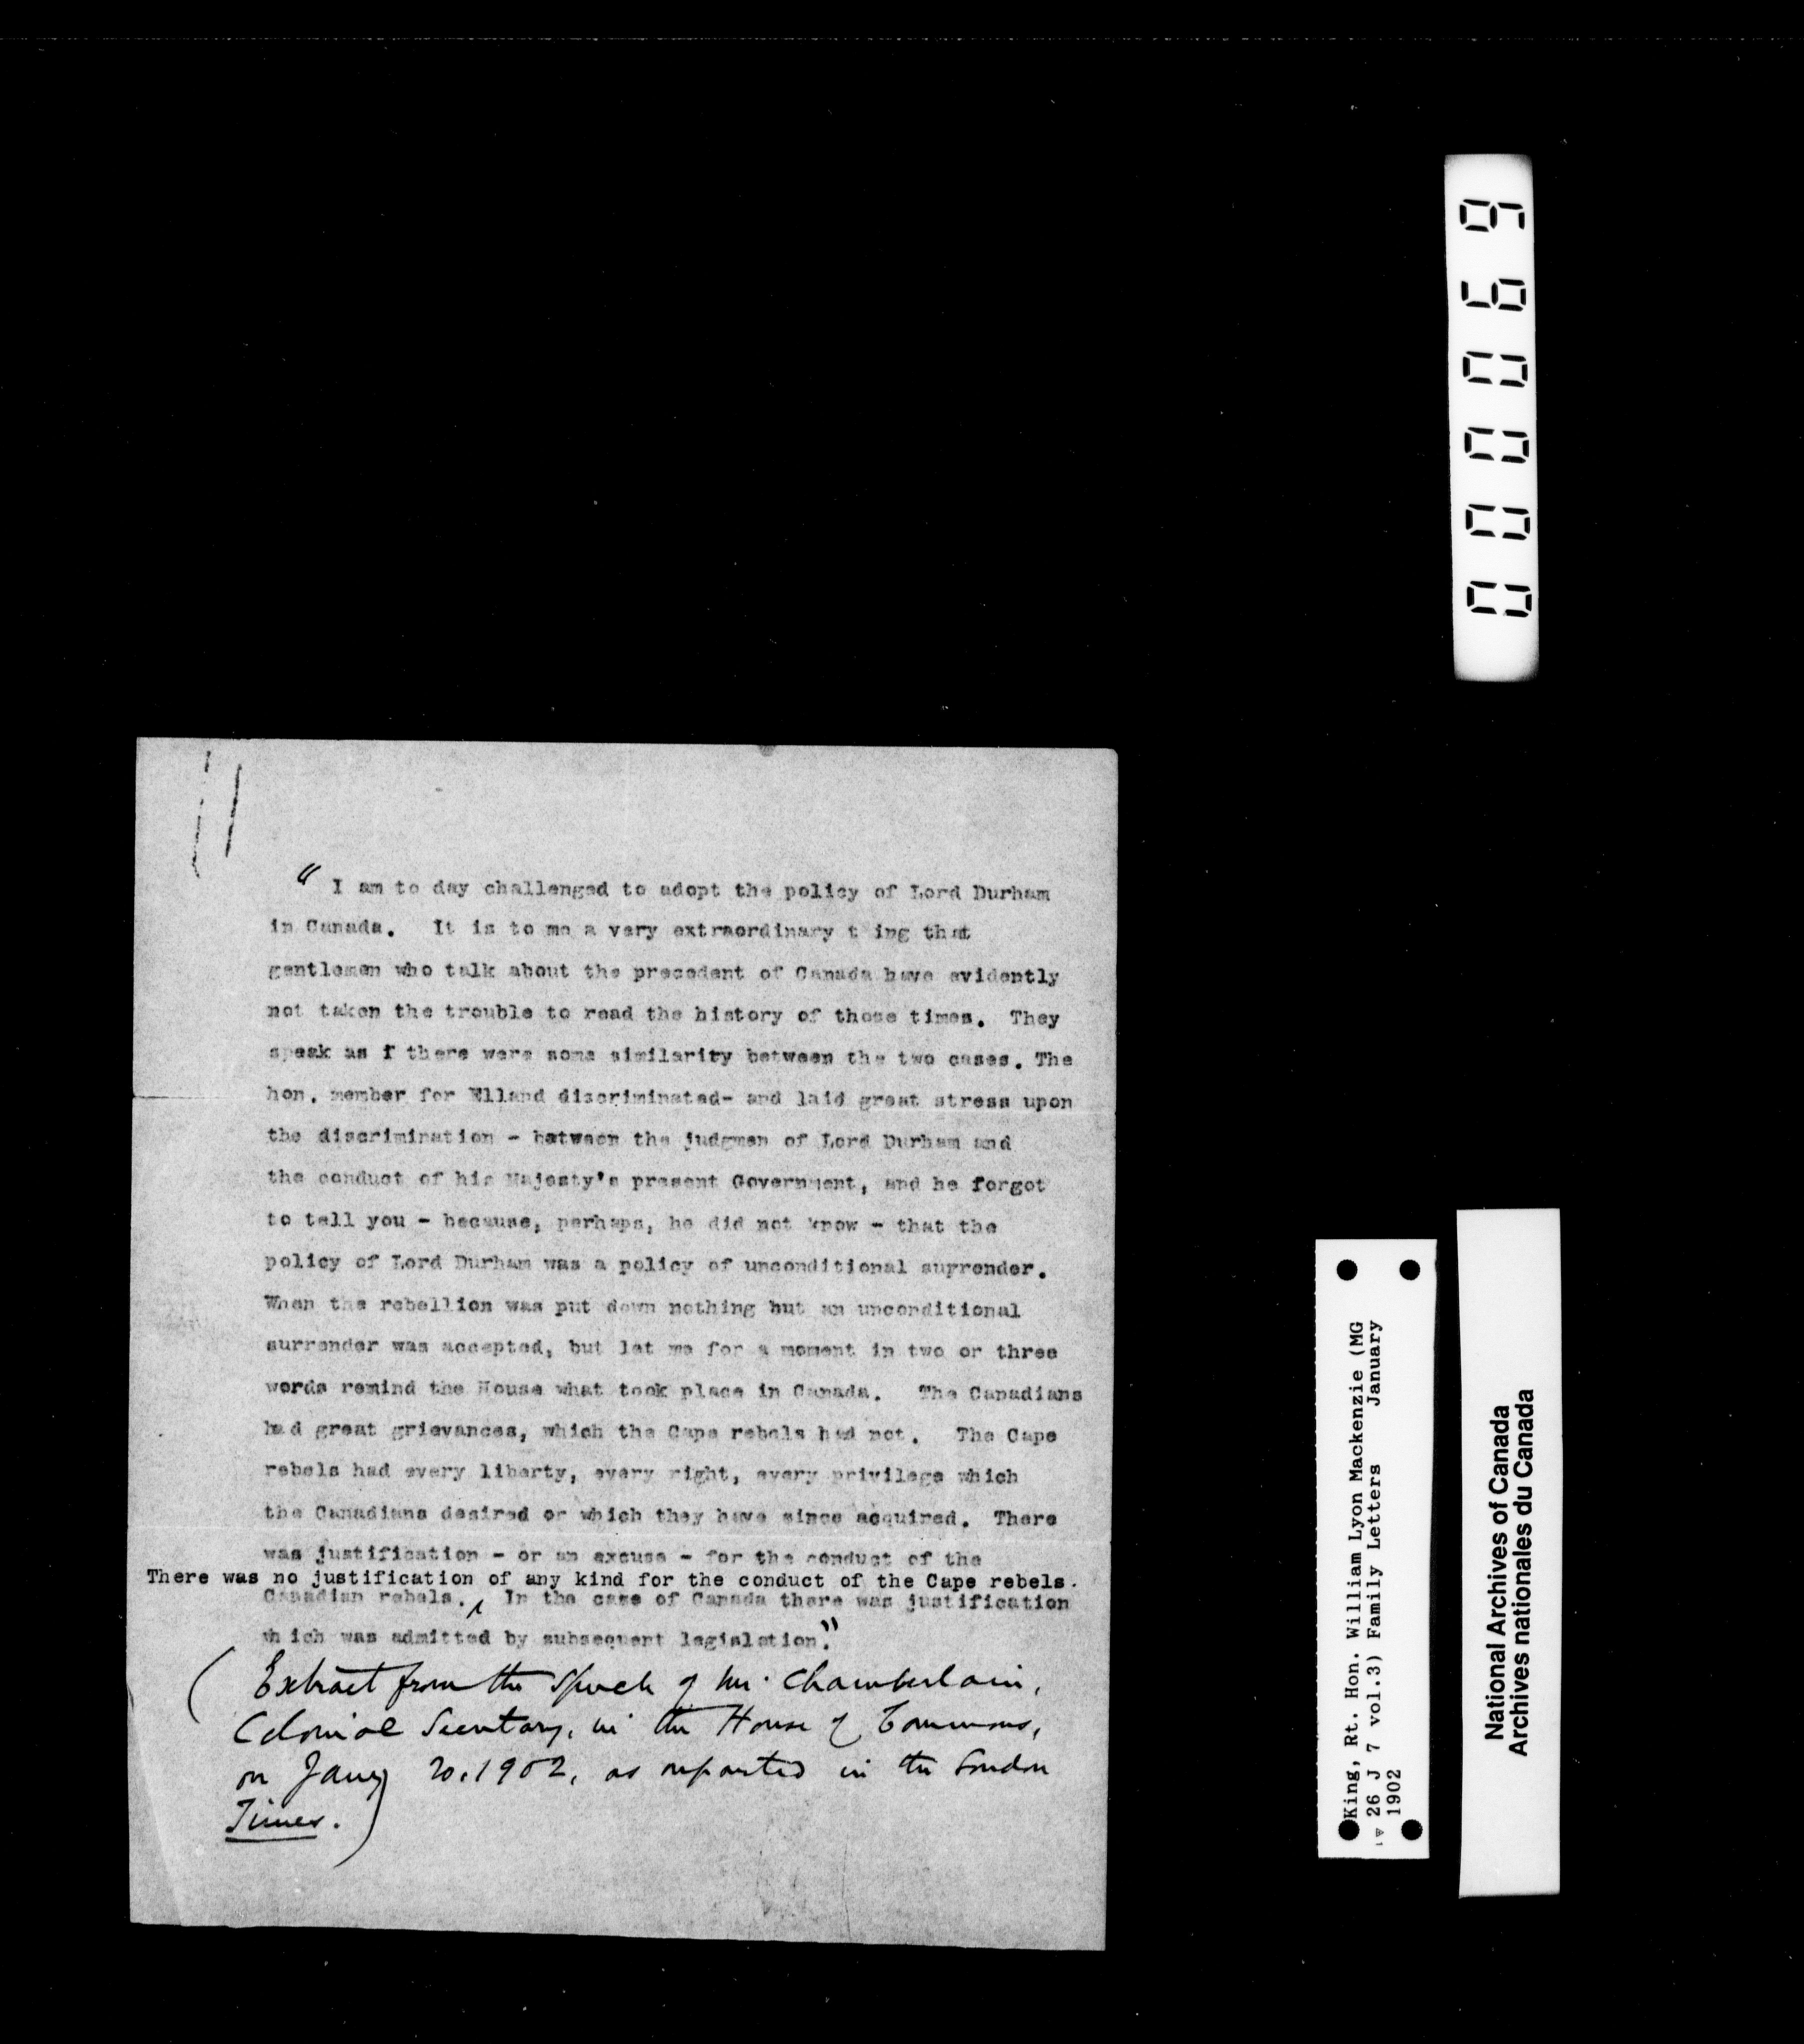 " I am to day challenged to adopt the policy of Lord Durham
in Canada. It is to me a very extraordinary t ing that
gentlemen who talk about the precedent of Canada have evidently
not taken the trouble to read the history of those times. They
speak as f there were some similarity between the two cases. The
hon. member for Elland discriminated- and laid great stress upon
the discrimination - between the judgmen of Lord Durham and
the conduct of his Majesty's present Government, and he forgot
to tell you - because, perhaps, he did not know - that the
policy of Lord Durham was a policy of unconditional surrender.
When the rebellion was put down nothing but an unconditional
surrender was accepted, but let me for a moment in two or three
words remind the House what took place in Canada. The Canadians
had great grievances, which the Cape rebels had not. The Cape
rebels had every liberty, every right, every privilege which
the Canadians desired or which they have since acquired. There
was justification - or an excuse - for the conduct of the
There was no justification of any kind for the conduct of the Cape rebels.
Canadian rebels. In the case of Canada there was justification
which was admitted by subsequent legislation."
(Extract from the Speech of Mr. Chamberlain,
Colonial Secretary, in the House of Commons,
on Jany 20, 1902, as reported in the London
Times.)
000069
King, Rt. Hon. William Lyon Mackenzie (MG
26 J 7 vol.3) Family Letters January
1902
National Archives of Canada
Archives nationales du Canada